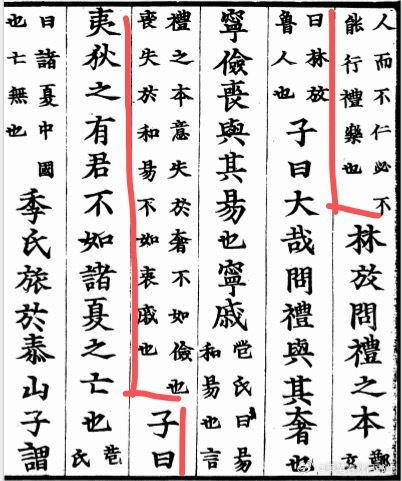 人而不仁必不
能行禮樂也
林放問禮之本
鄭玄
曰林放
魯人也
子曰大哉問禮與其奢也
寧儉喪與其易也寧戚
苞氏曰易
和易也言
禮之本意失於奢不如儉也
喪失於和易不如哀戚也
子曰
夷狄之有君不如諸夏之亡也
苞氏
曰諸夏中國
也亡無也
季氏旅於泰山子謂